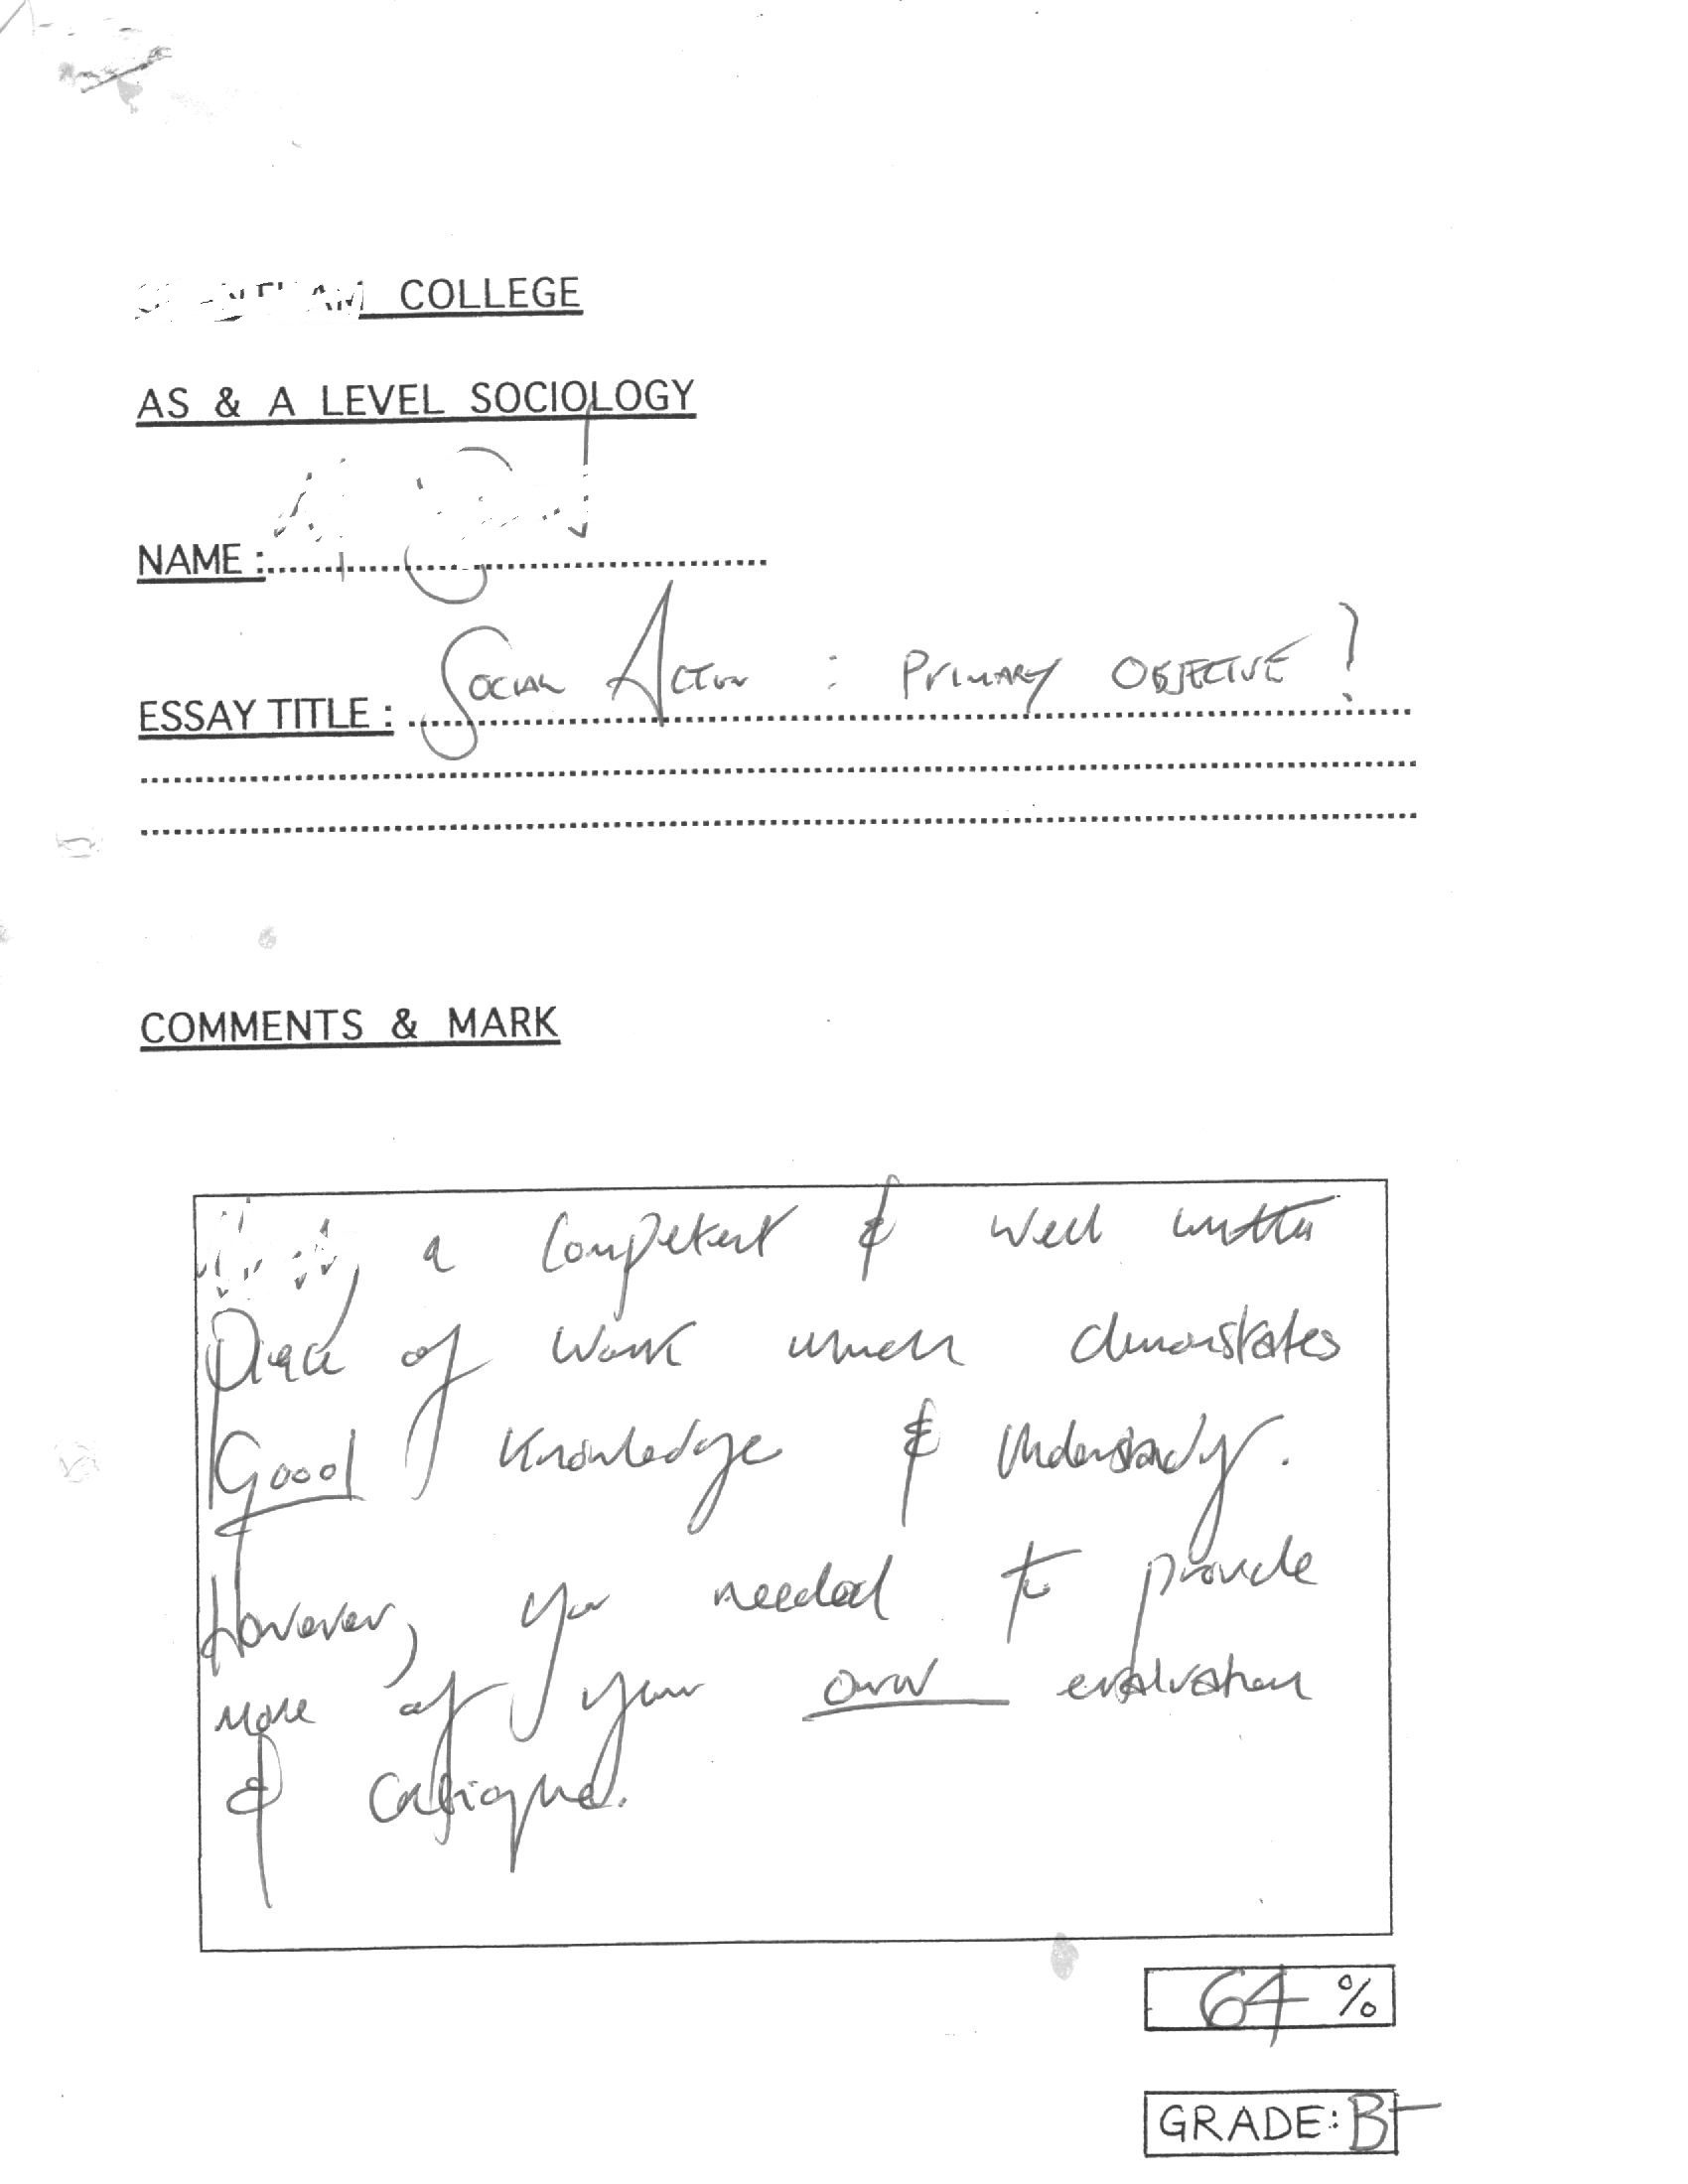 COLLEGE
AS & A LEVEL SOCIOLOGY
NAME :
ESSAY TITLE : SOCIAL ACTION : PRIMARY OBJECTIVE?
COMMENTS & MARK
a competent & well written
piece of work which demonstrates
Good knowledge & understanding.
However, you needed to provide
more of your own evaluation
& critique.
64 %
GRADE: B-